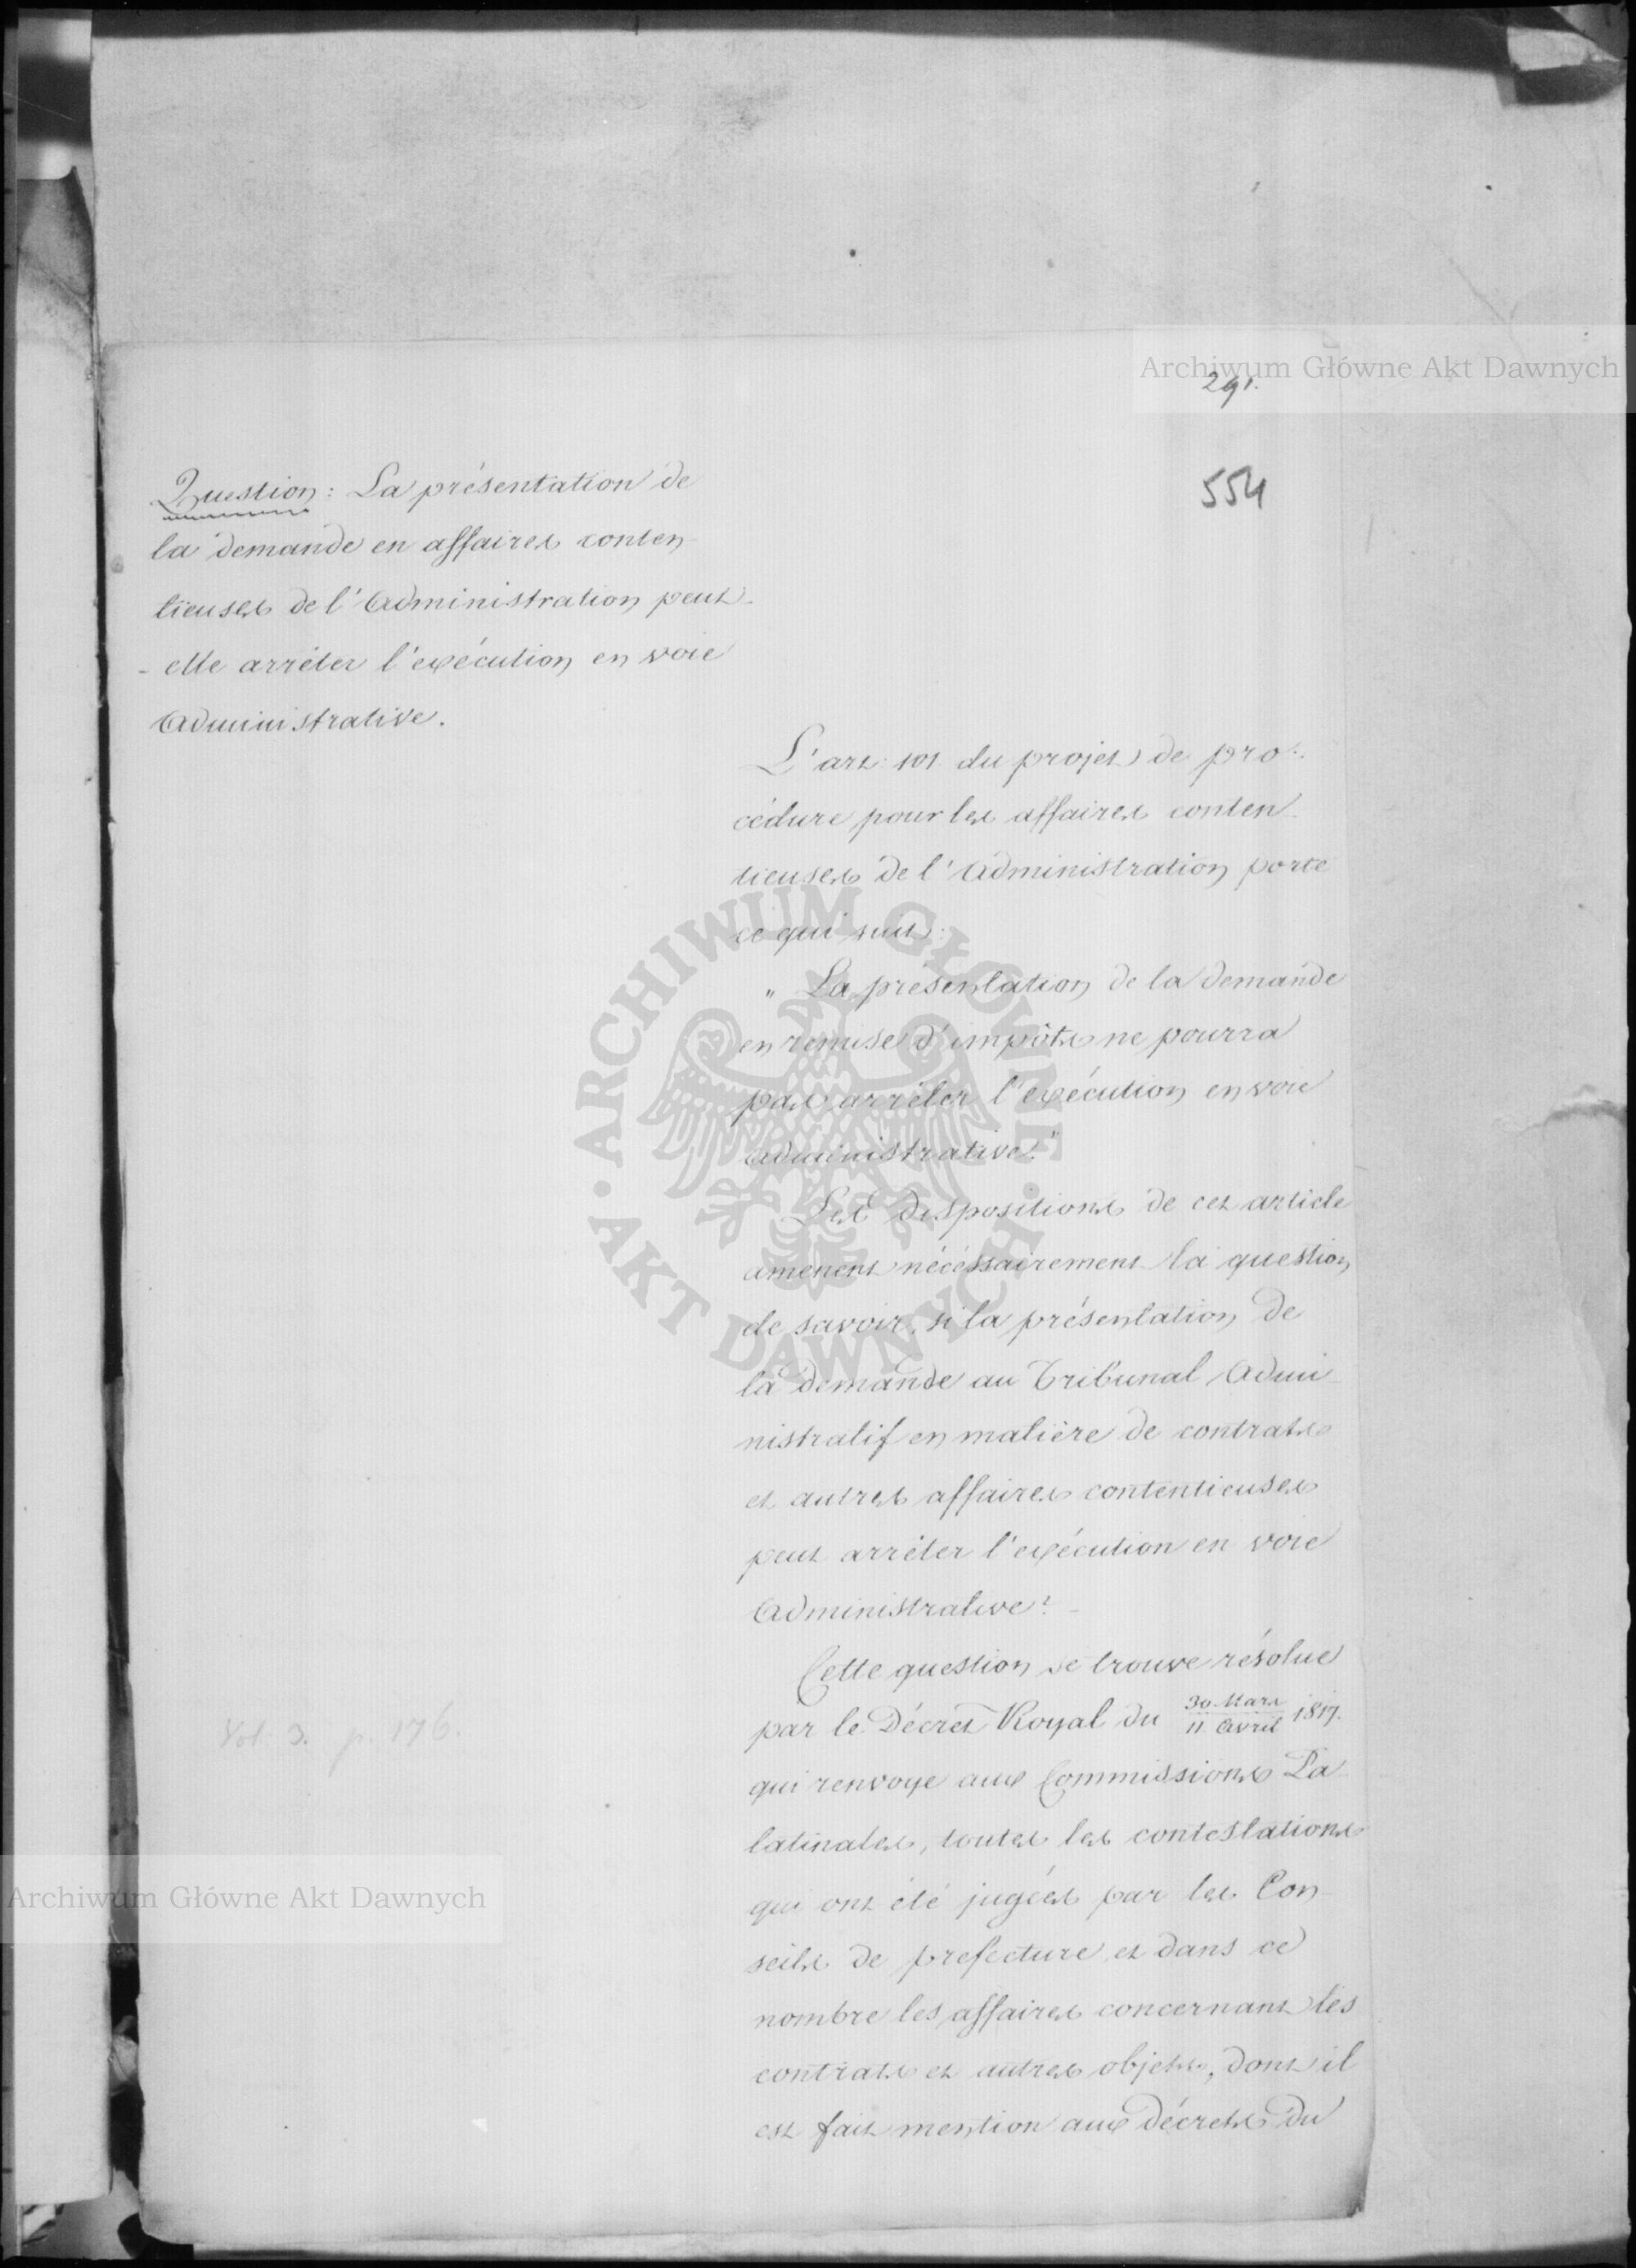 Archiwum Główne Akt Dawnych
291.
554
Question: La présentation de
la demande en affaires conten
tieuses de l'Administration peut-
-elle arrêter l'exécution en voie
Administrative.
L'art: 101. du projet de pro-
cédure pour les affaires conten-
tieuses de l'Administration porte
ce qui suit:
„ La présentation de la demande
en remise d'impôts ne pourra
pas arrêter l'exécution en voie
administrative."
Les dispositions de cet article
amenent nécéssairement la question
de savoir, si la présentation de
la demande au Tribunal Admi-
nistratif en matière de contrats
et autres affaires contentieuses
peut arrêter l'exécution en voie
Administrative? -
Cette question se trouve résolue
par le Décret Royal du 30 Mars / 11 Avril 1817.
qui renvoye aux Commissions Pa-
latinales, toutes les contestations
qui ont été jugées par les Con-
seils de prefecture et dans ce
nombre les affaires concernant les
contrats et autres objets, dont il
est fait mention aux Décrets du
Vol: 3. p. 176.
Archiwum Główne Akt Dawnych
ARCHIWUM GŁÓWNE
AKT DAWNYCH